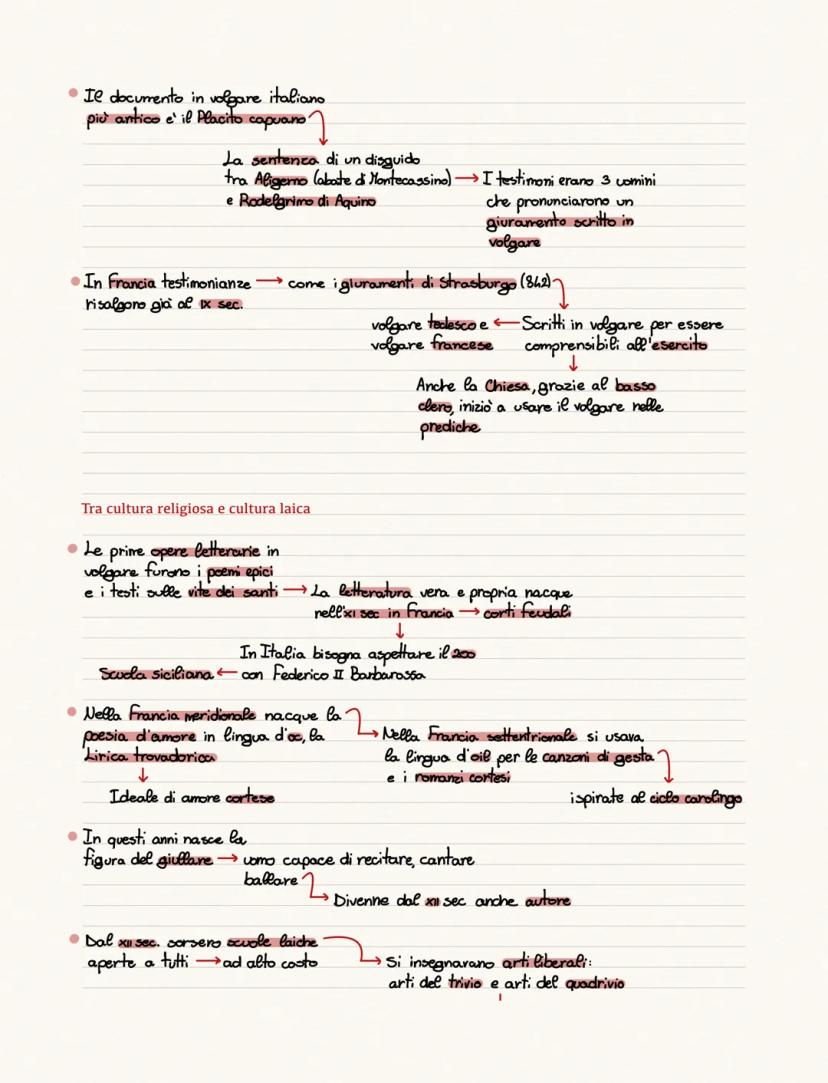 Il documento in volgare italiano
più antico e' il Placito capuano
La sentenza di un disguido
tra Aligerno (abate di Montecassino) → I testimoni erano 3 uomini
e Rodelgrimo di Aquino
che pronunciarono un
giuramento scritto in
volgare
In Francia testimonianze → come i giuramenti di Strasburgo (842)
risalgono già al IX sec.
volgare tedesco e ← Scritti in volgare per essere
volgare francese comprensibili all'esercito
Anche la Chiesa, grazie al basso
clero, iniziò a usare il volgare nelle
prediche
Tra cultura religiosa e cultura laica
Le prime opere letterarie in
volgare furono i poemi epici
e i testi sulle vite dei santi → La letteratura vera e propria nacque
nell'XI sec in Francia → corti feudali
In Italia bisogna aspettare il 200
Scuola siciliana ← con Federico II Barbarossa
Nella Francia meridionale nacque la
poesia d'amore in lingua d'oc, la
Lirica trovadorica
Nella Francia settentrionale si usava
la lingua d'oil per le canzoni di gesta
e i romanzi cortesi
Ideale di amore cortese
ispirate al ciclo carolingo
In questi anni nasce la
figura del giullare → uomo capace di recitare, cantare
ballare
Divenne dal XII sec anche autore
Dal XII sec. sorsero scuole laiche
aperte a tutti → ad alto costo
Si insegnavano arti liberali:
arti del trivio e arti del quadrivio